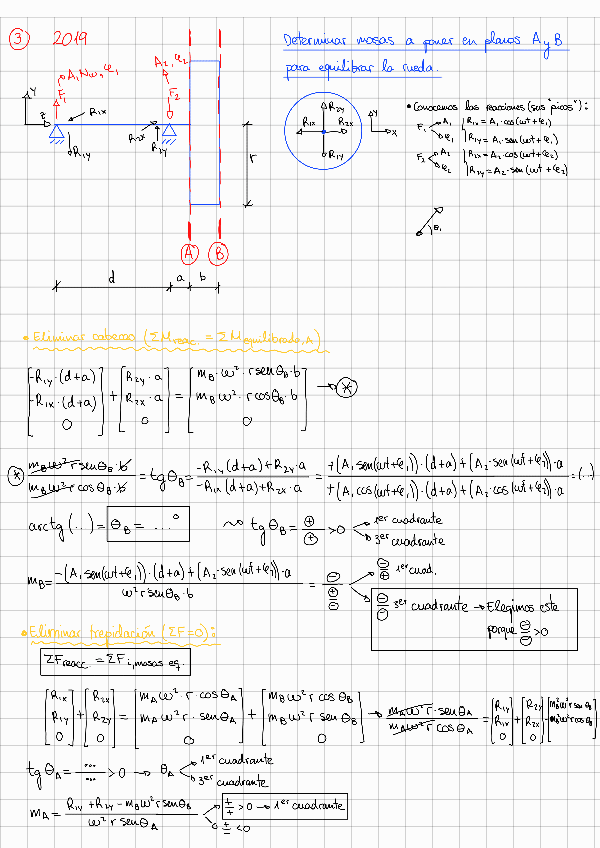 ③ 2019
Determinar masas a poner en planos A y B
para equilibrar la rueda.
A₁ Nω, φ₁
A₂, φ₂
F₁
F₂
Y
Z
R1X
R1Y
R2X
R2Y
r
A
B
d
a
b
R2Y
R1X
R2X
R1Y
Y
X
• Conocemos las reacciones (sus "picos"):
F₁ A₁ φ₁
R1X = A₁·cos(ωt+φ₁)
R1Y = A₁·sen(ωt+φ₁)
F₂ A₂ φ₂
R2X = A₂·cos(ωt+φ₂)
R2Y = A₂·sen(ωt+φ₂)
• Eliminar cabeceo (ΣMreacc. = ΣMequilibrado,A)
[-R1Y·(d+a) -R1X·(d+a) 0] + [R2Y·a R2X·a 0] = [mB·ω²·r senθB·b mB ω²·r cosθB·b 0] → *
* mB ω² r senθB·b / mB ω² r cosθB·b = tgθB = -R1Y(d+a)+R2Y·a / -R1X(d+a)+R2X·a = +(A₁ sen(ωt+φ₁))·(d+a)+(A₂·sen(ωt+φ₂))·a / +(A₁ cos(ωt+φ₁))·(d+a)+(A₂·cos(ωt+φ₂))·a = (..)
arctg(..) = θB = ...° ~> tgθB = ⊕/⊕ >0
1er cuadrante
3er cuadrante
mB = -(A₁ sen(ωt+φ₁))·(d+a)+(A₂·sen(ωt+φ₂))·a / ω² r senθB·b = ⊖/⊖
⊖/⊕ 1er cuad.
⊖/⊖ 3er cuadrante → Elegimos este
porque ⊖/⊖ >0
• Eliminar trepidación (ΣF=0):
ΣFreacc. = ΣFi,masas eq.
[R1X R1Y 0] + [R2X R2Y 0] = [mA ω²·r·cosθA mA ω²·r·senθA 0] + [mB ω² r cosθB mB ω² r senθB 0] → mA ω² r·senθA / mA ω² r cosθA = [R1Y R1X 0] + [R2Y R2X 0] - [mB ω² r senθB mB ω² r cosθB]
tgθA = .../... >0 → θA
1er cuadrante
3er cuadrante
mA = R1Y + R2Y - mB ω² r senθB / ω² r senθA
+/+ >0 → 1er cuadrante
+/- <0